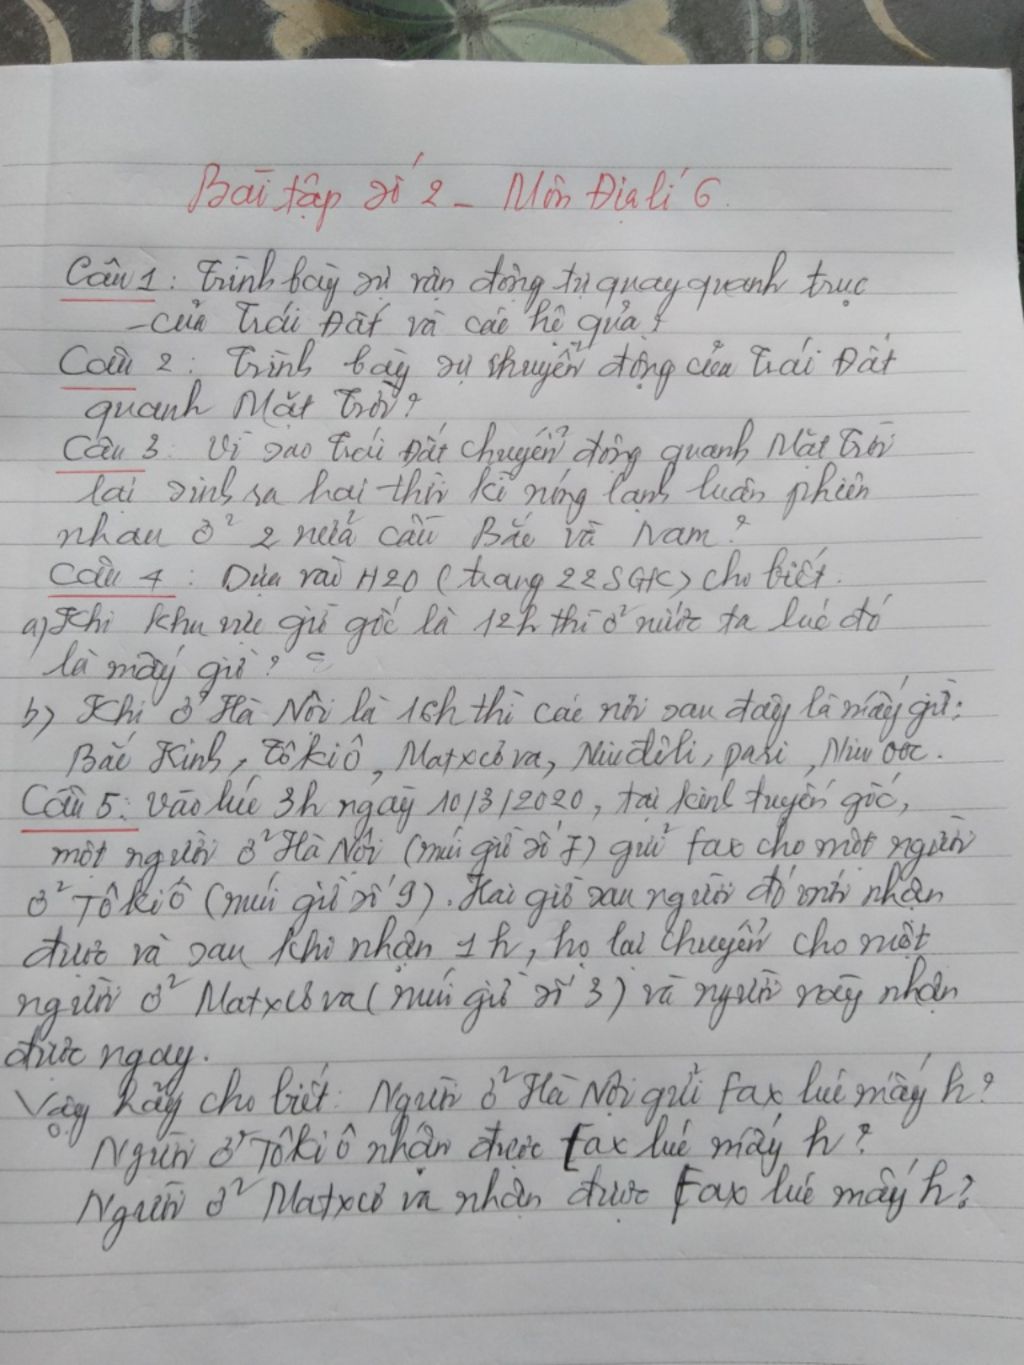 Bài tập số 2 - Môn Địa lí 6.
Câu 1: Trình bày sự vận động tự quay quanh trục
của Trái Đất và các hệ quả?
Câu 2: Trình bày sự chuyển động của Trái Đất
quanh Mặt Trời?
Câu 3: Vì sao Trái Đất chuyển động quanh Mặt Trời
lại sinh ra hai thời kì nóng lạnh luân phiên
nhau ở 2 nửa cầu Bắc và Nam?
Câu 4: Dựa vào H20 (trang 22SGK) cho biết.
a) Khi khu vực giờ gốc là 12h thì ở nước ta lúc đó
là mấy giờ?
b) Khi ở Hà Nội là 16h thì các nơi sau đây là mấy giờ:
Bắc Kinh, Tôkiô, Matxcơva, Niuđêli, pari, Niu ooc.
Câu 5: Vào lúc 3h ngày 10/3/2020, tại kinh tuyến gốc,
một người ở Hà Nội (múi giờ số 7) gửi fax cho một người
ở Tôkiô (múi giờ số 9). Hai giờ sau người đó mới nhận
được và sau khi nhận 1h, họ lại chuyển cho một
người ở Matxcơva (múi giờ số 3) và người này nhận
được ngay.
Vậy hãy cho biết: Người ở Hà Nội gửi fax lúc mấy h?
Người ở Tôkiô nhận được fax lúc mấy h?
Người ở Matxcơ va nhận được fax lúc mấy h?